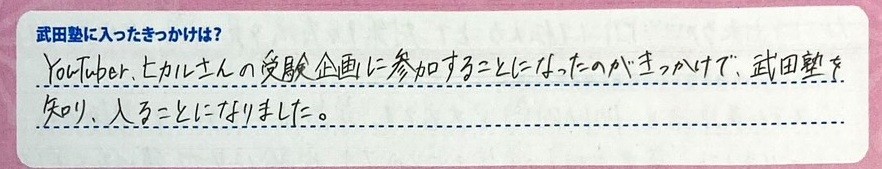 武田塾に入ったきっかけは?
YouTuber、ヒカルさんの受験企画に参加することになったのがきっかけで、武田塾を
知り、入ることになりました。